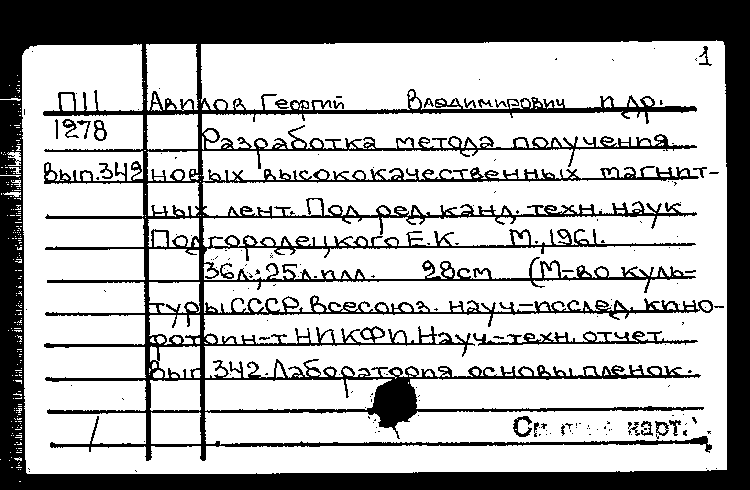 1
П11 Авилов, Георгий Владимирович и др.
1278 Разработка метода получения
Вып.342 новых высококачественных магнит-
ных лент. Под ред. канд. техн. наук
Подгородецкого Е.К. М., 1961.
36л.; 25л.илл. 28см (М-во куль-
туры СССР. Всесоюз. науч.-исслед. кино-
фотоин-т НИКФИ. Науч.-техн. отчет.
Вып.342. Лаборатория основы пленок.
См. карт.